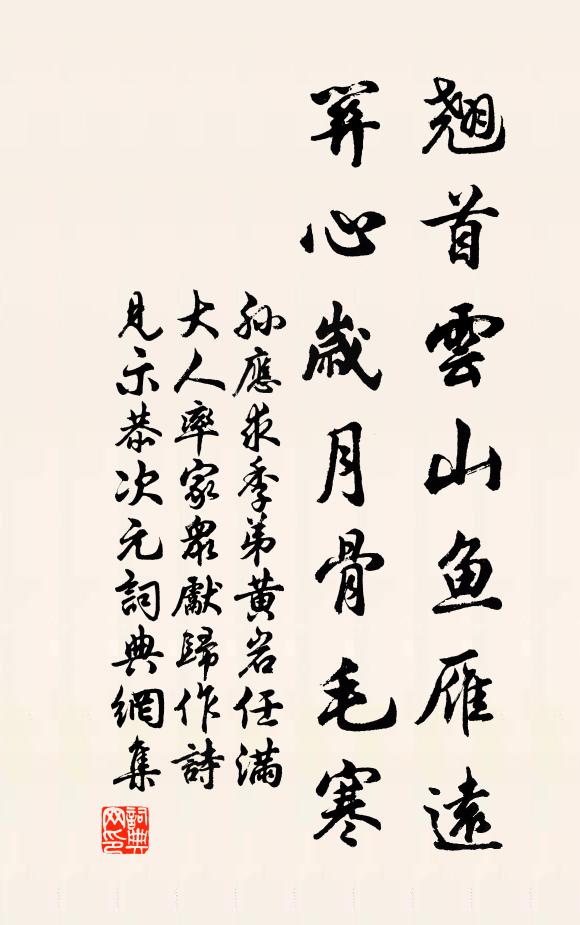 翹首雲山魚雁遠
羿心歲月骨毛寒
孙應求季弟黄岩任滿
大人率家衆獻歸作詩
見示恭次元詞典網集
詞典网印